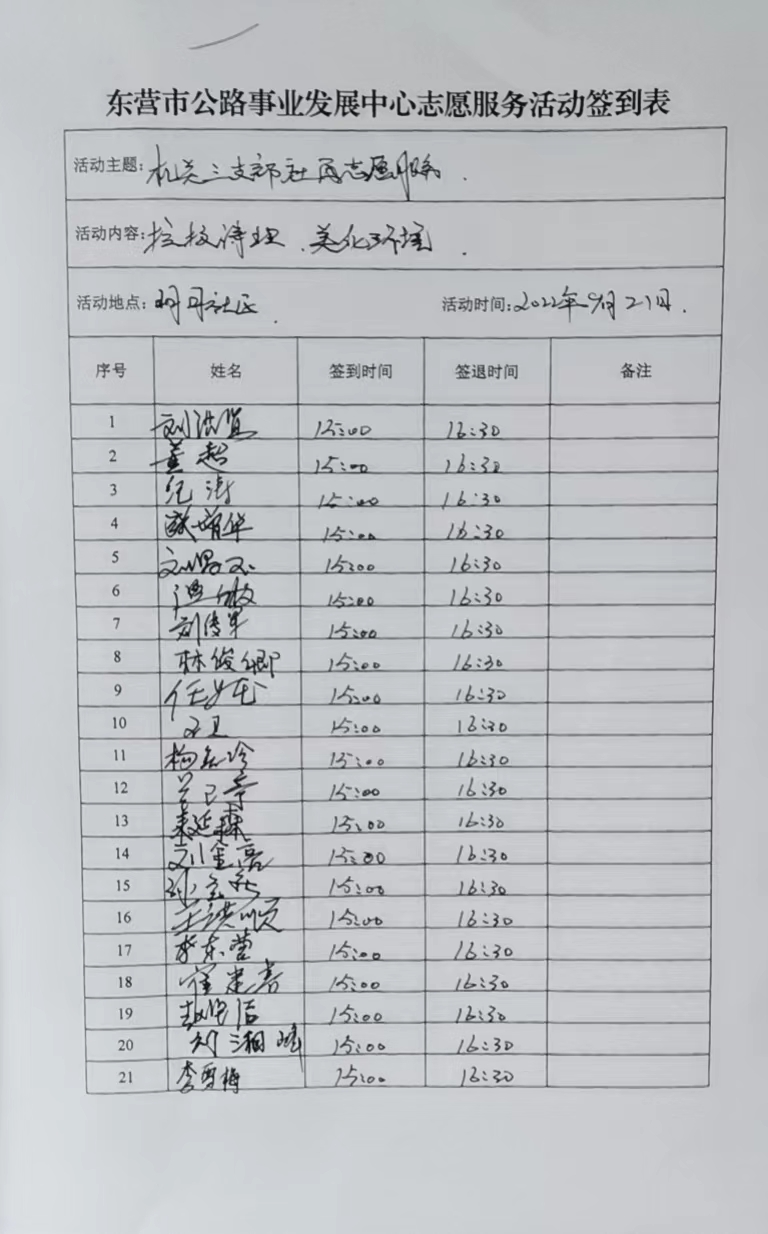 东营市公路事业发展中心志愿服务活动签到表
活动主题: 机关三支部社区志愿服务.
活动内容: 垃圾清理、美化环境.
活动地点: 明月社区. 活动时间: 2022年9月21日.
序号 姓名 签到时间 签退时间 备注
1 15:00 16:30
2 董超 15:00 16:30
3 纪涛 15:00 16:30
4 15:00 16:30
5 15:00 16:30
6 15:00 16:30
7 刘传军 15:00 16:30
8 林俊卿 15:00 16:30
9 15:00 16:30
10 15:00 16:30
11 15:00 16:30
12 15:00 16:30
13 15:00 16:30
14 刘金亮 15:00 16:30
15 15:00 16:30
16 王洪顺 15:00 16:30
17 李东营 15:00 16:30
18 15:00 16:30
19 15:00 16:30
20 15:00 16:30
21 李雪梅 15:00 16:30